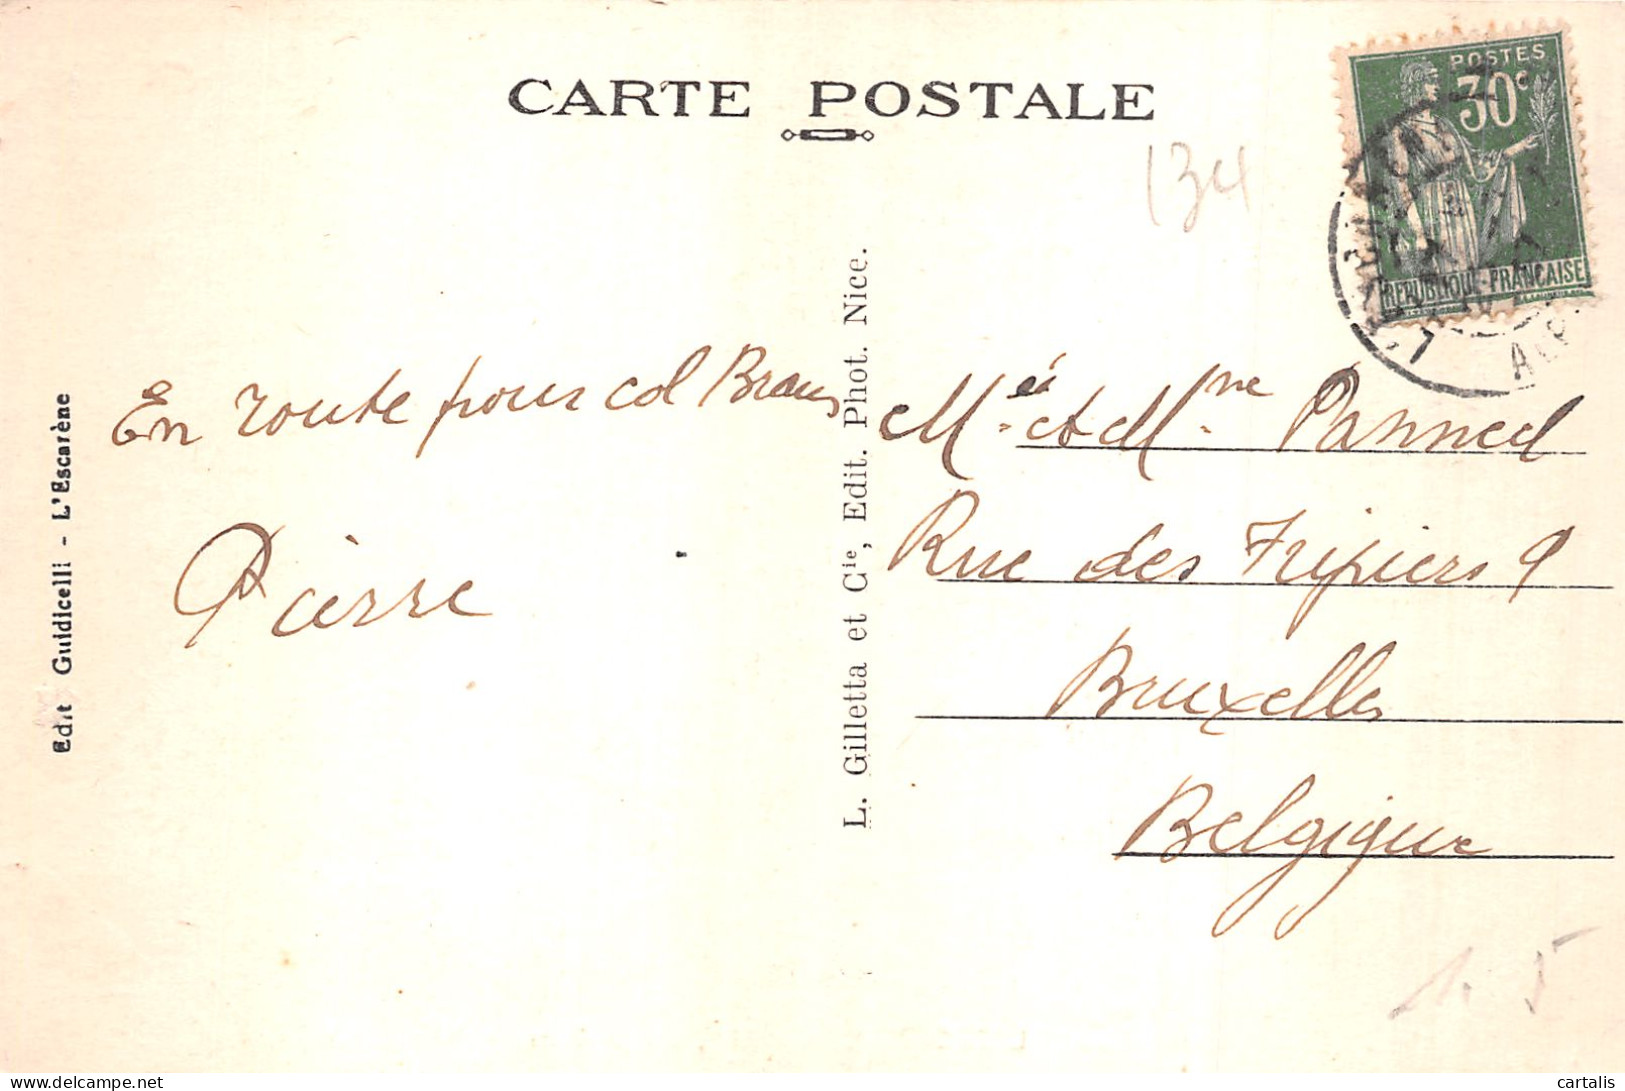 CARTE POSTALE
134
POSTES
30c
REPUBLIQUE-FRANÇAISE
Edit Guidicelli - L'Escarène
L. Gilletta et Cie, Edit. Phot. Nice.
En route pour col Braus
Pierre
Mr et Mme Panneel
Rue des Fripiers 9
Bruxelles
Belgique
cartalis
delcampe.net